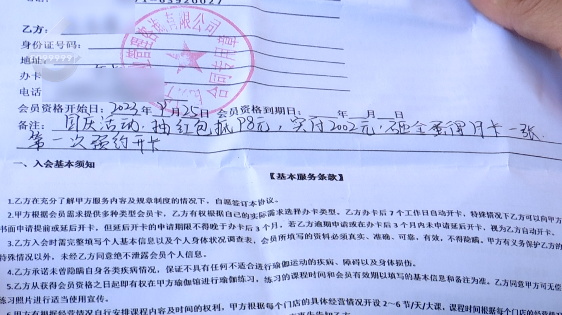 71-63920027
乙方：
身份证号码：
地址：
办卡
电话
会员资格开始日：2023年9月25日 会员资格到期日： 年 月 日
备注：国庆活动，抽红包抵98元，实付2002元，砸金蛋得月卡一张.
第一次预约开卡
一、入会基本须知
【基本服务条款】
1.乙方在充分了解甲方服务内容及规章制度的情况下，自愿签订本协议。
2.甲方根据会员需求提供多种类型会员卡，乙方有权根据自己的实际需求选择办卡类型。乙方办卡后7个工作日自动开卡，特殊情况下乙方可以向甲方
书面申请提前或延迟开卡，但延后开卡的申请期限不得晚于办卡后3个月，若乙方逾期申请或在办卡后3个月内未申请延后开卡，视为乙方自动开卡。
3.乙方入会时需完整填写个人基本信息以及个人身体状况调查表，会员所填写的资料必须真实、准确、可靠，有效，不得隐瞒。甲方有义务保护乙方的
特殊情况以外，未经乙方同意绝不泄露会员个人信息。
4.乙方承诺未曾隐瞒自身各类疾病情况，保证不具有任何不适合进行瑜伽运动的疾病、障碍以及身体损伤。
5.乙方从获得会员资格之日起即有权在甲方瑜伽馆进行瑜伽练习，练习的课程时间和会员有效期以填写的基本信息和备注为准。乙方同意甲方可无偿
练习照片进行适当使用宣传。
6.甲方有权根据经营情况自行安排课程内容及时间的权利，甲方根据每个门店的具体经营情况开设2～6节/天/大课，课程时间根据每个门店的